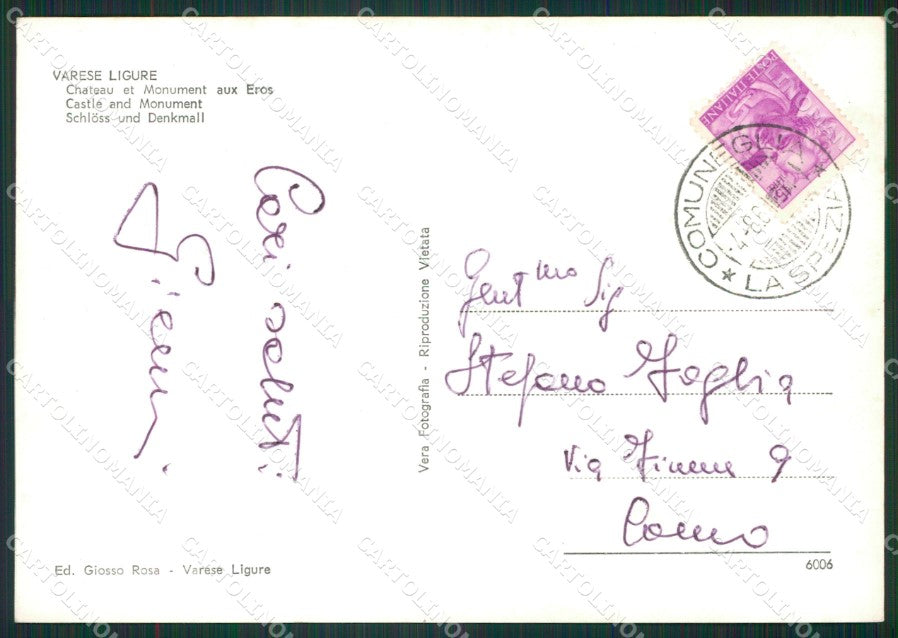 VARESE LIGURE
Chateau et Monument aux Eros
Castle and Monument
Schlöss und Denkmall
Cari saluti
POSTE ITALIANE
COMUNEGLIA
LA SPEZIA
Vera Fotografia - Riproduzione Vietata
Gent mo Sig
Stefano
Via 9
Como
Ed. Giosso Rosa - Varese Ligure
6006
CARTOLINOMANIA